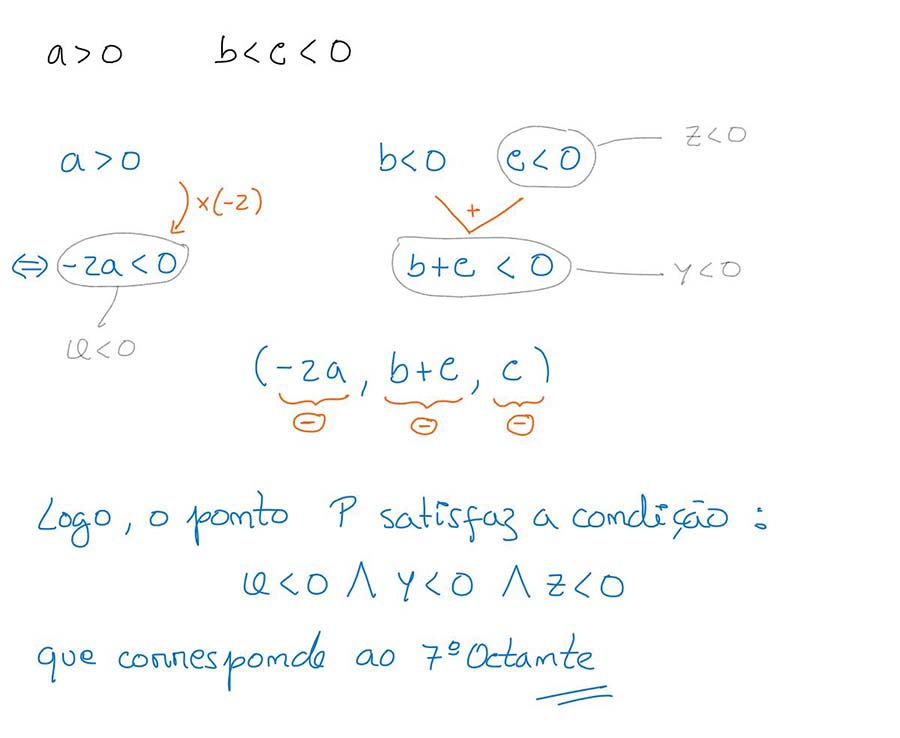 a > 0 b < c < 0
a > 0 b < 0 c < 0 z < 0
×(-2) +
⇔ -2a < 0 b + c < 0 y < 0
x < 0
(-2a, b + c, c)
⊖ ⊖ ⊖
Logo, o ponto P satisfaz a condição :
x < 0 ∧ y < 0 ∧ z < 0
que corresponde ao 7º Octante